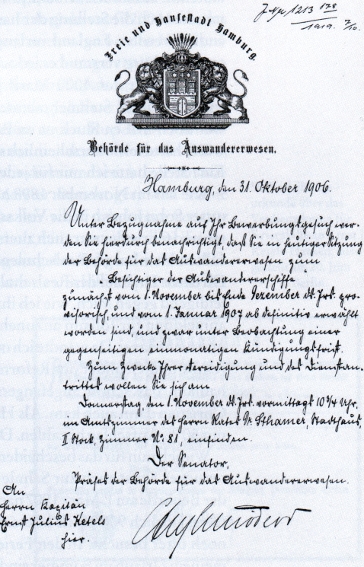 Freie und Hansestadt Hamburg.
Behörde für das Auswandererwesen.
Hamburg, den 31. Oktober 1906.
Unter Bezugnahme auf Ihr Bewerbungsgesuch wer-
den Sie hierdurch benachrichtigt, daß Sie in heutiger Sitzung
der Behörde für das Auswandererwesen zum
Besichtiger der Auswandererschiffe
zunächst vom 1. November bis Ende Dezember ds. Jrs. pro-
visorisch, und vom 1. Januar 1907 ab definitiv erwählt
worden sind, und zwar unter Beobachtung einer
gegenseitigen einmonatlichen Kündigungsfrist.
Zum Zwecke Ihrer Beeidigung und des Dienstan-
trittes wollen Sie sich am
Donnerstag den 1. November ds. Jrs. vormittags 10¾ Uhr,
im Amtszimmer des Herrn Rates Dr. Sthamer, Stadthaus,
II Stock, Zimmer No. 81, einfinden.
Der Senator,
Präses der Behörde für das Auswandererwesen.
An
Herrn Kapitän
Ernst Julius Ketels
hier.